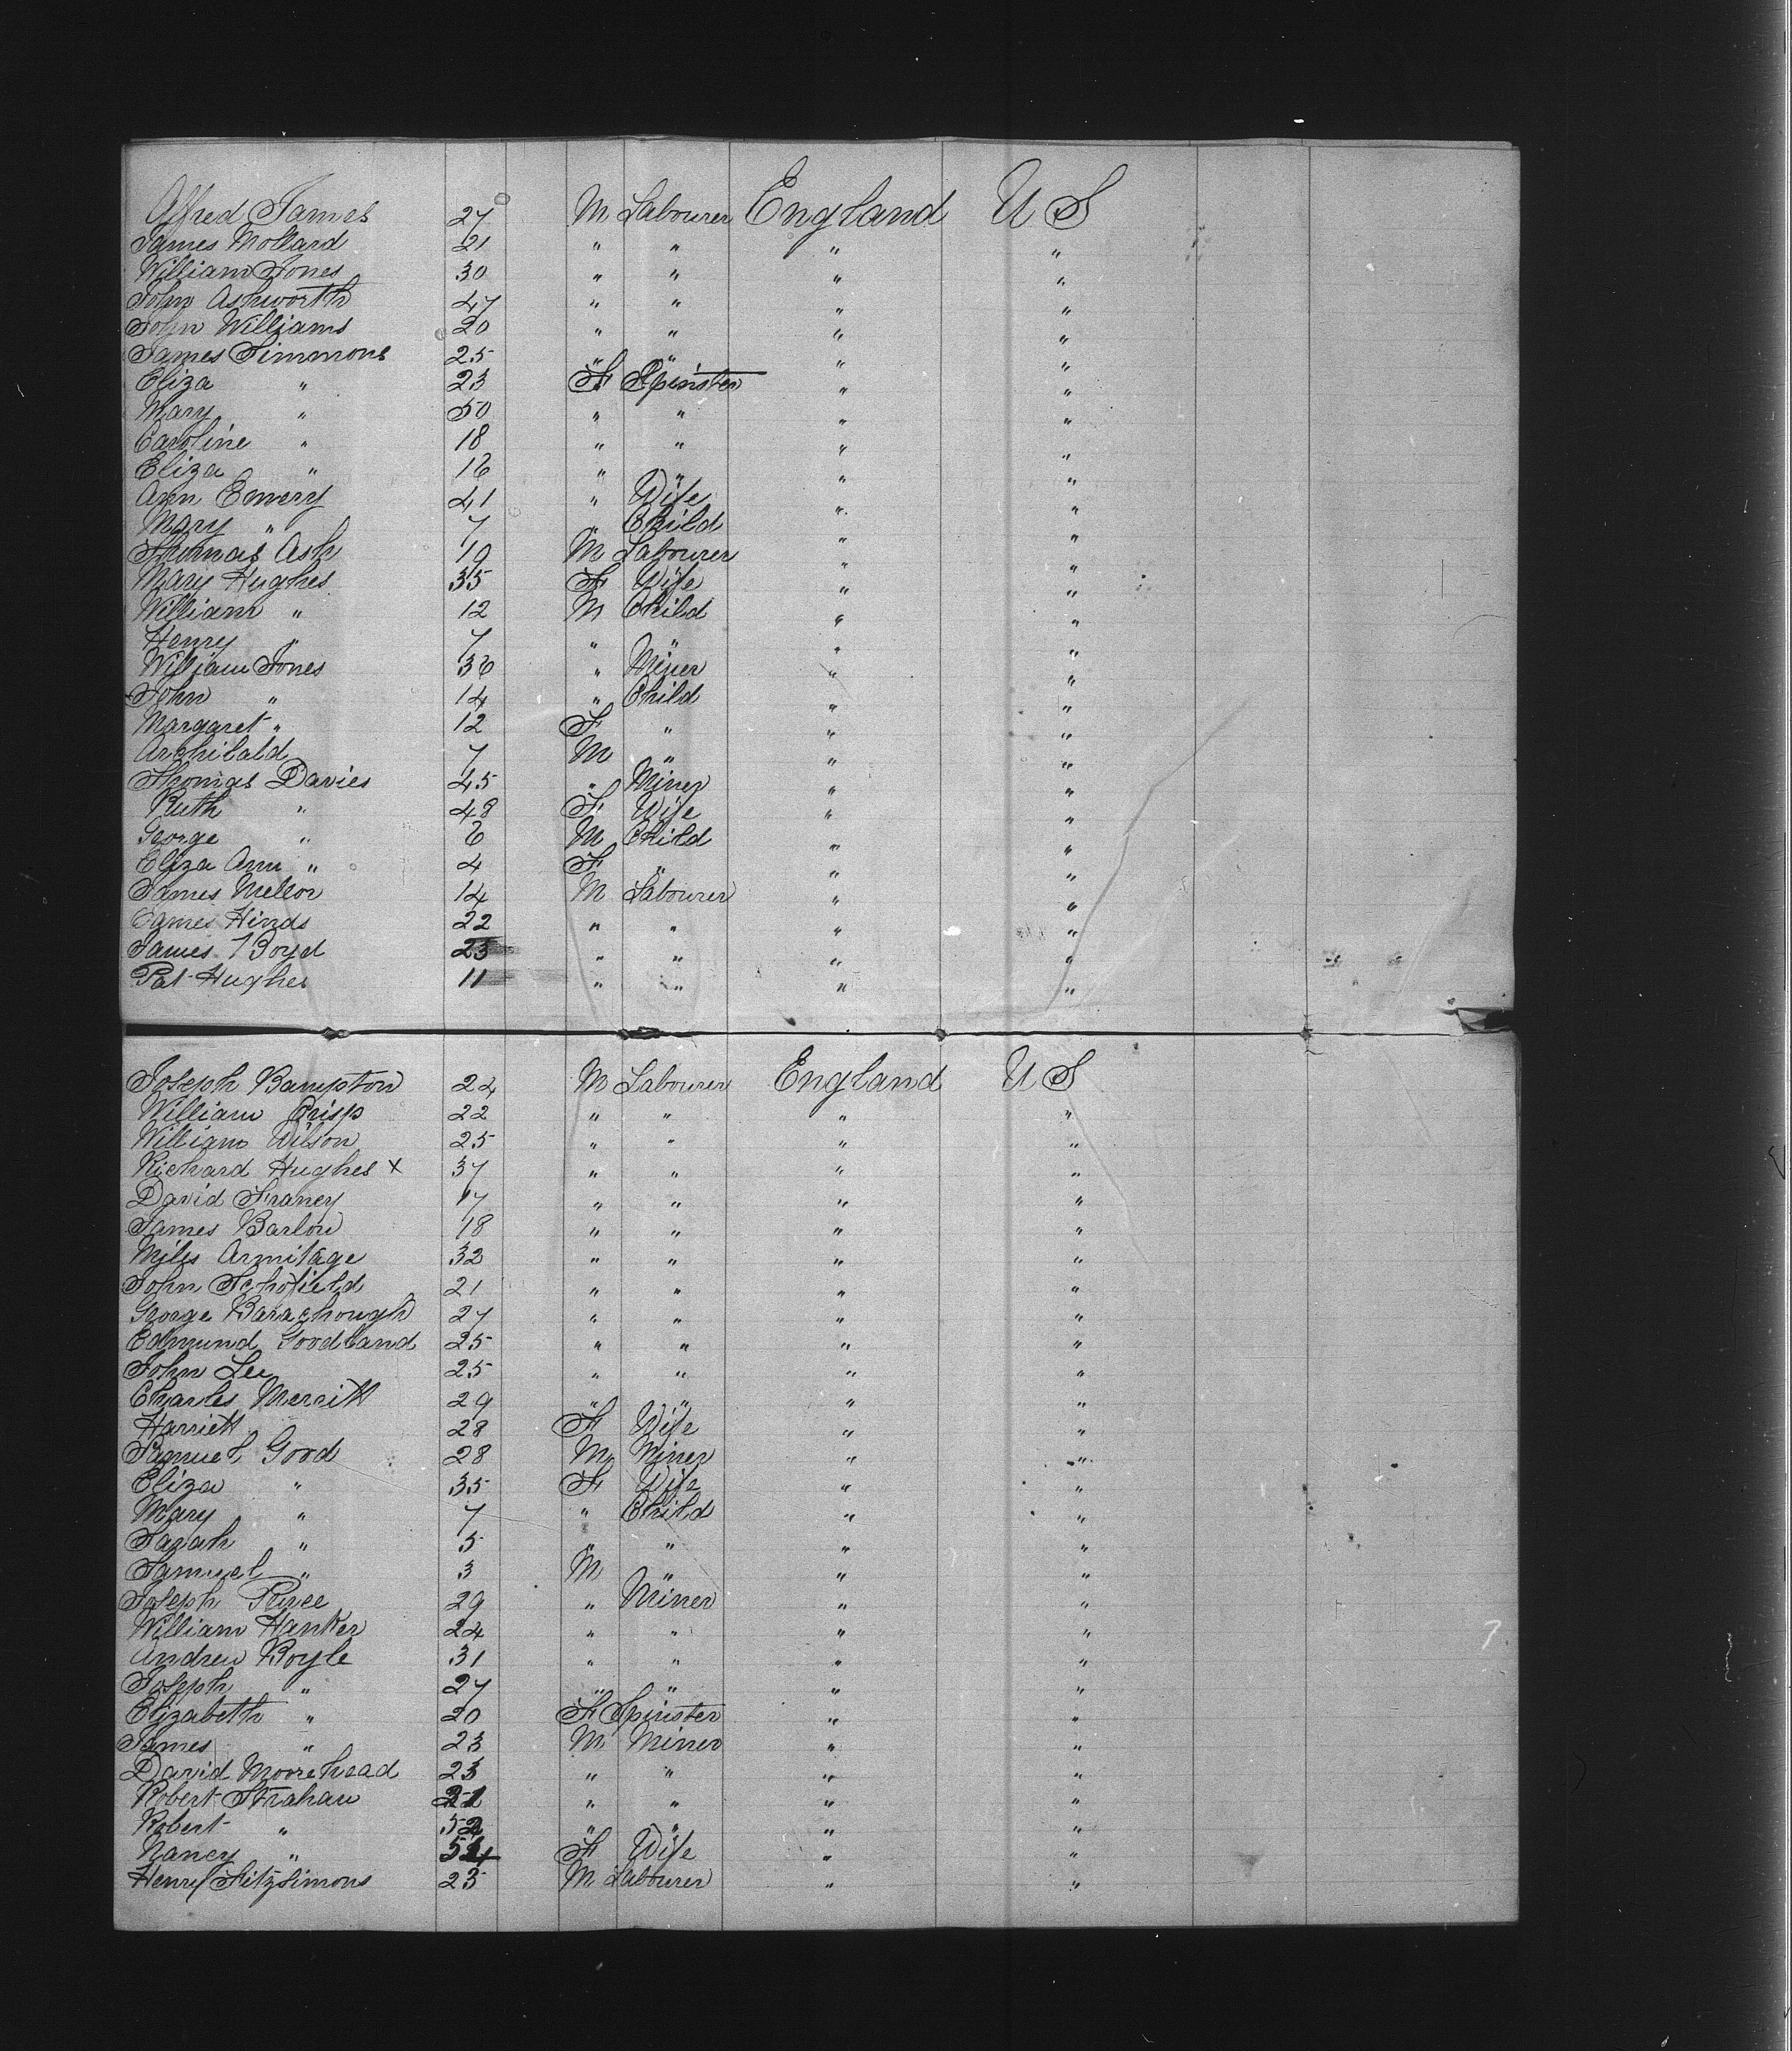 Alfred James 27 M Labourer England U S
James Mollard 21 " " " "
William Jones 30 " " " "
John Ashworth 47 " " " "
John Williams 20 " " " "
James Simmons 25 " " " "
Eliza " 23 F Spinster " "
Mary " 50 " " " "
Caroline " 18 " " " "
Eliza " 16 " " " "
Ann Emery 41 " Wife " "
Mary " 7 " Child " "
Thomas Ash 19 M Labourer " "
Mary Hughes 35 F Wife " "
William " 12 M Child " "
Henry " 7 " " " "
William Jones 36 " Miner " "
John " 14 " Child " "
Margaret " 12 F " " "
Archibald 7 M " " "
Thomas Davies 45 " Miner " "
Ruth " 48 F Wife " "
George " 6 M Child " "
Eliza Ann " 4 F " " "
James Mellor 14 M Labourer " "
James Hinds 22 " " " "
James Boyd 23 " " " "
Pat Hughes 11 " " " "
Joseph Bampton 24 M Labourer England U S
William Crisp 22 " " " "
William Wilson 25 " " " "
Richard Hughes x 37 " " " "
David Francy 17 " " " "
James Barlow 18 " " " "
Miles Armitage 32 " " " "
John Schofield 21 " " " "
George 27 " " " "
Edmund Goodland 25 " " " "
John Lee 25 " " " "
Charles Merritt 29 " " " "
Harriett 28 F Wife " "
Samuel Good 28 M Miner " "
Eliza " 35 F Wife " "
Mary " 7 " Child " "
Sarah " 5 " " " "
Samuel " 3 M " " "
Joseph 29 " Miner " "
William Hanker 24 " " " "
Andrew Boyle 31 " " " "
Joseph " 27 " " " "
Elizabeth " 20 F Spinster " "
James " 23 M Miner " "
David Moorehead 23 " " " "
Robert Strahan " " " "
Robert " 52 " " " "
Nancy " F Wife " "
Henry Fitzsimons 23 M Labourer " "